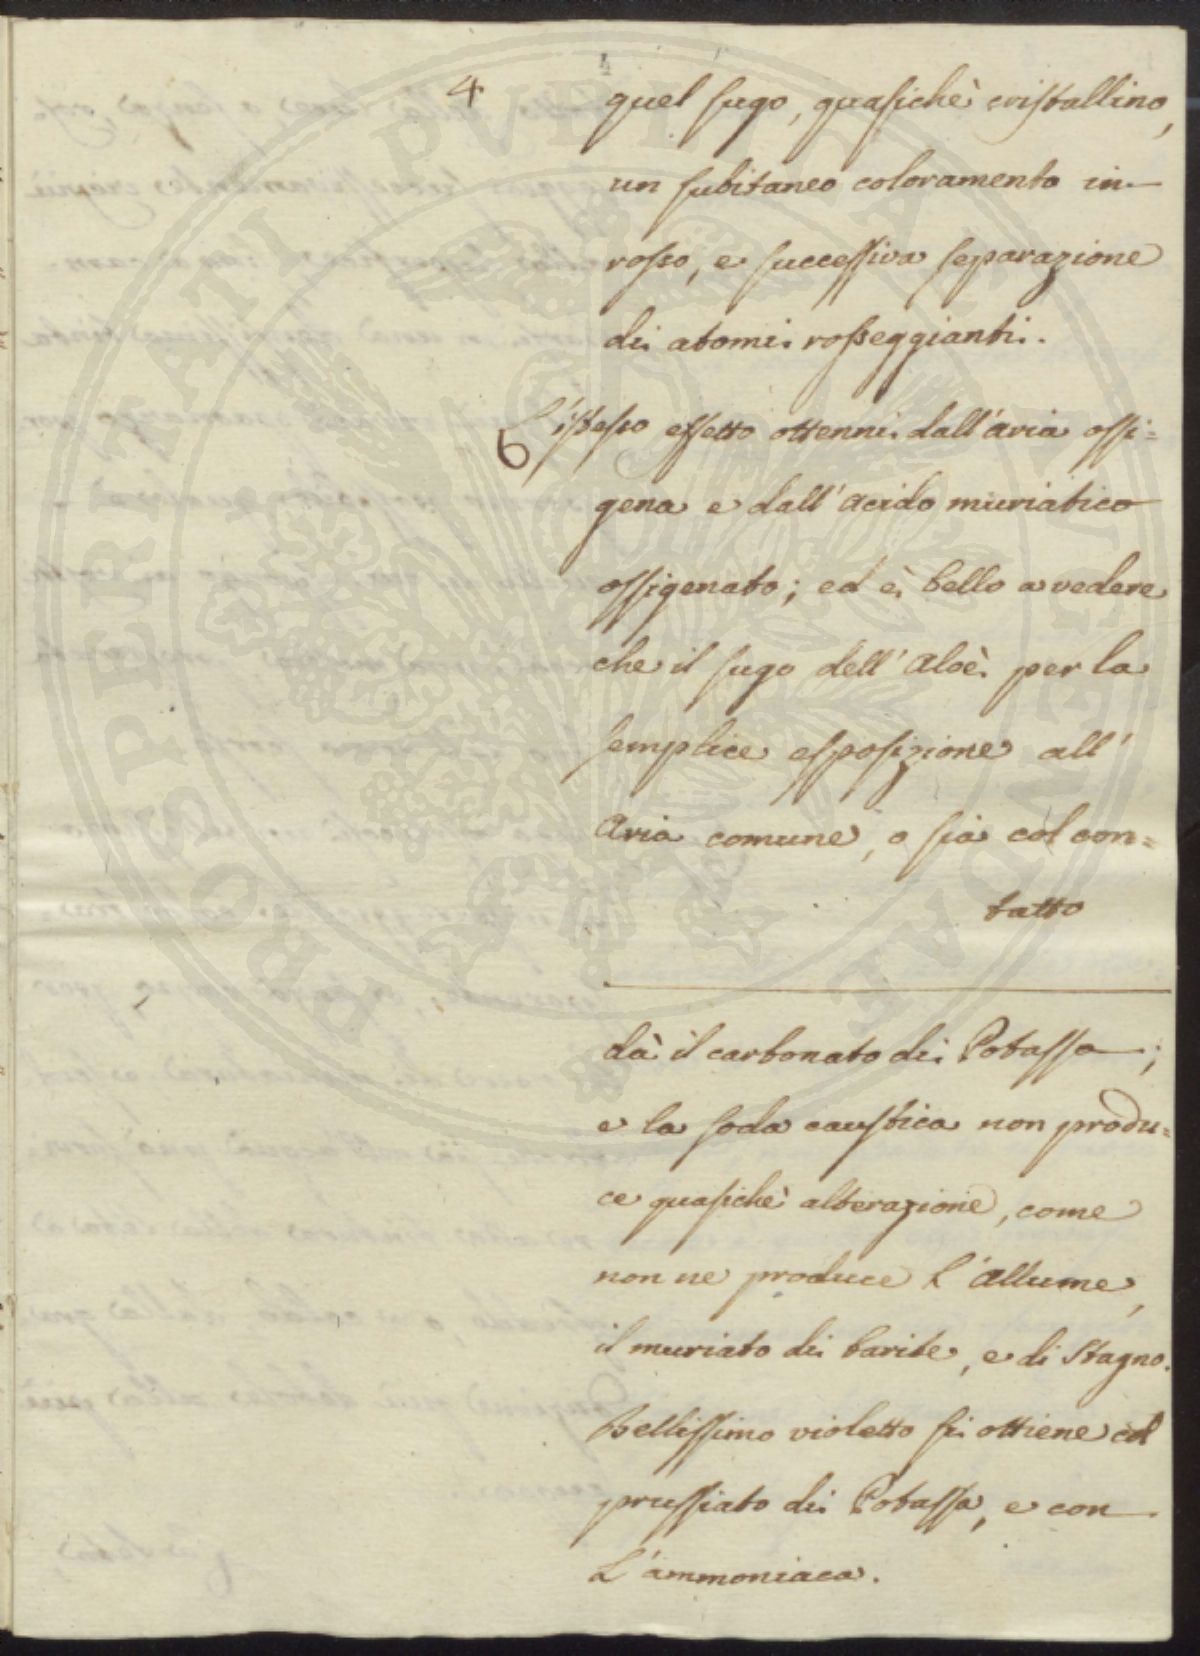 4
quel sugo, quasichè cristallino,
un subitaneo coloramento in
rosso, e successiva separazione
di atomi rosseggianti.
L'istesso effetto ottenni dall'aria ossi=
gena e dall'Acido muriatico
ossigenato; ed è bello a vedere
che il sugo dell'Aloè per la
semplice esposizione all'
Aria comune, o sia col con=
tatto
dà il carbonato di Potassa;
e la soda caustica non produ=
ce quasichè alterazione, come
non ne produce l'Allume,
il muriato di barite, e di Stagno.
Bellissimo violetto si ottiene col
prussiato di Potassa, e con
L'ammoniaca.
PROSPERITATI PVBLICAE